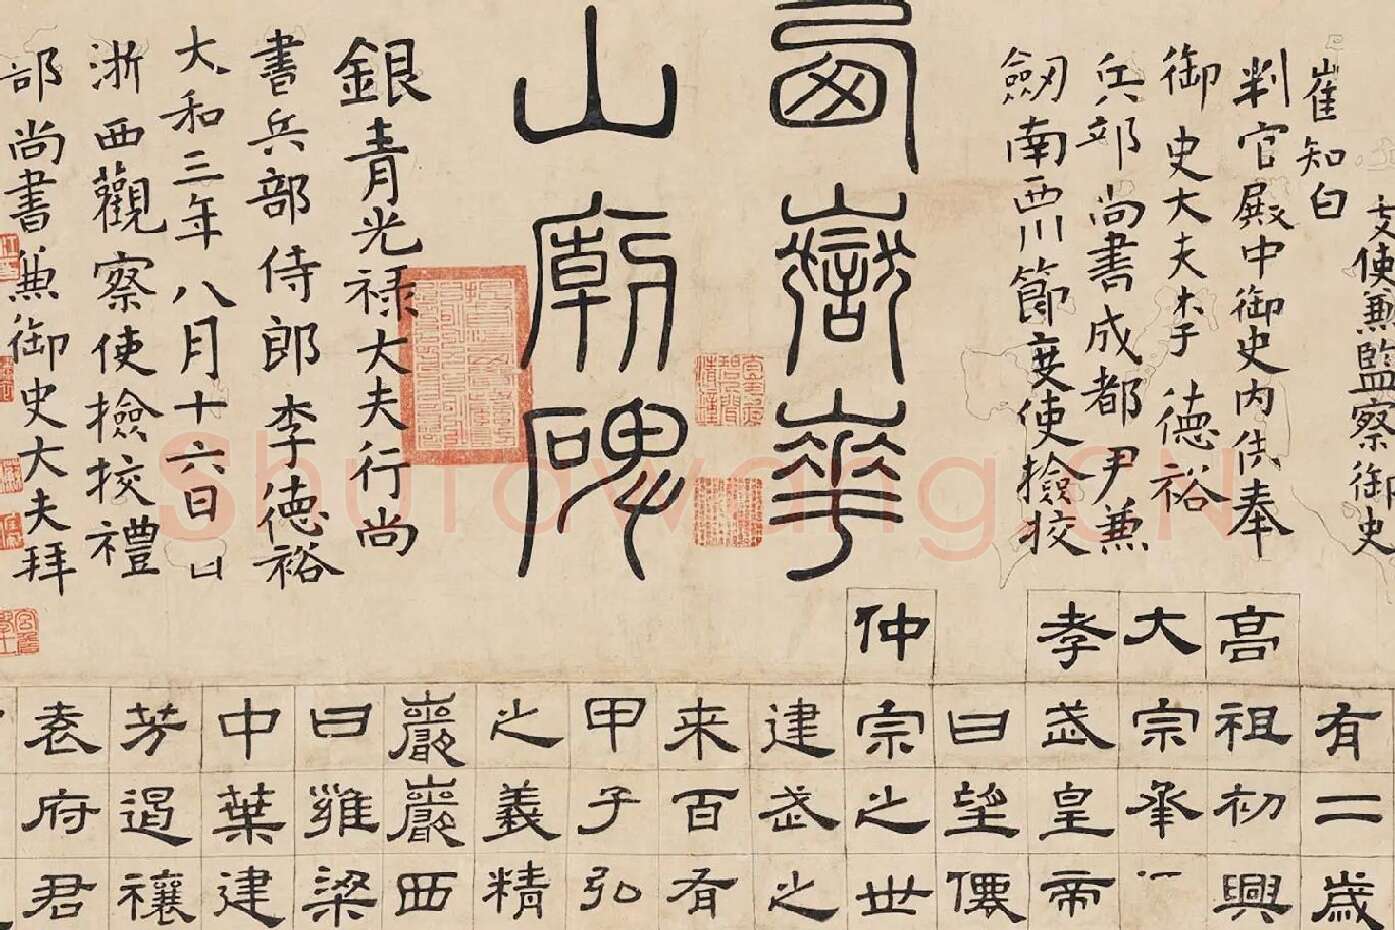 支使兼監察御史
崔知白
判官殿中御史内供奉
御史大夫李德裕
兵部尚書成都尹兼
劒南西川節度使撿挍
西嶽華
山廟碑
銀青光禄大夫行尚
書兵部侍郎李德裕
大和三年八月十六日
浙西觀察使撿挍禮
部尚書兼御史大夫拜
有二歲
高祖初興
大宗承
孝武皇帝
曰望僊
仲宗之世
建武之
来百有
甲子弘
之義精
巖巖西
曰雍梁
中葉建
芳遏禳
袁府君
Shufawang.CN